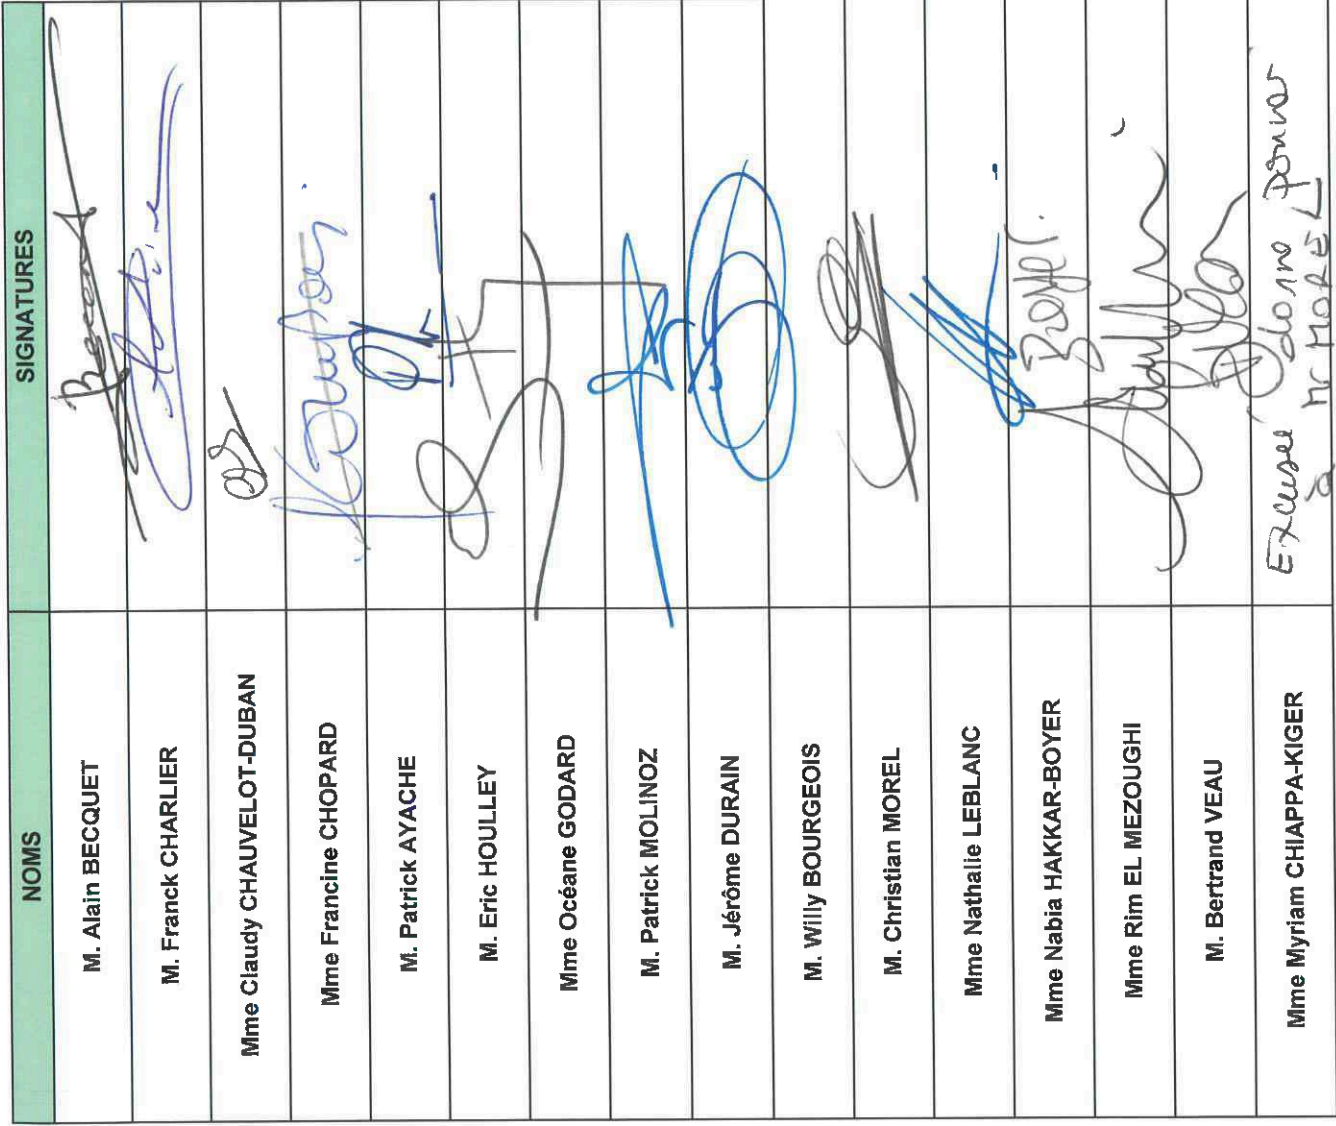 NOMS SIGNATURES
M. Alain BECQUET Becquet
M. Franck CHARLIER
Mme Claudy CHAUVELOT-DUBAN
Mme Francine CHOPARD
M. Patrick AYACHE
M. Eric HOULLEY
Mme Océane GODARD
M. Patrick MOLINOZ
M. Jérôme DURAIN
M. Willy BOURGEOIS
M. Christian MOREL
Mme Nathalie LEBLANC
Mme Nabia HAKKAR-BOYER
Mme Rim EL MEZOUGHI
M. Bertrand VEAU
Mme Myriam CHIAPPA-KIGER Excusée donne pouvoir
à Mr MOREL